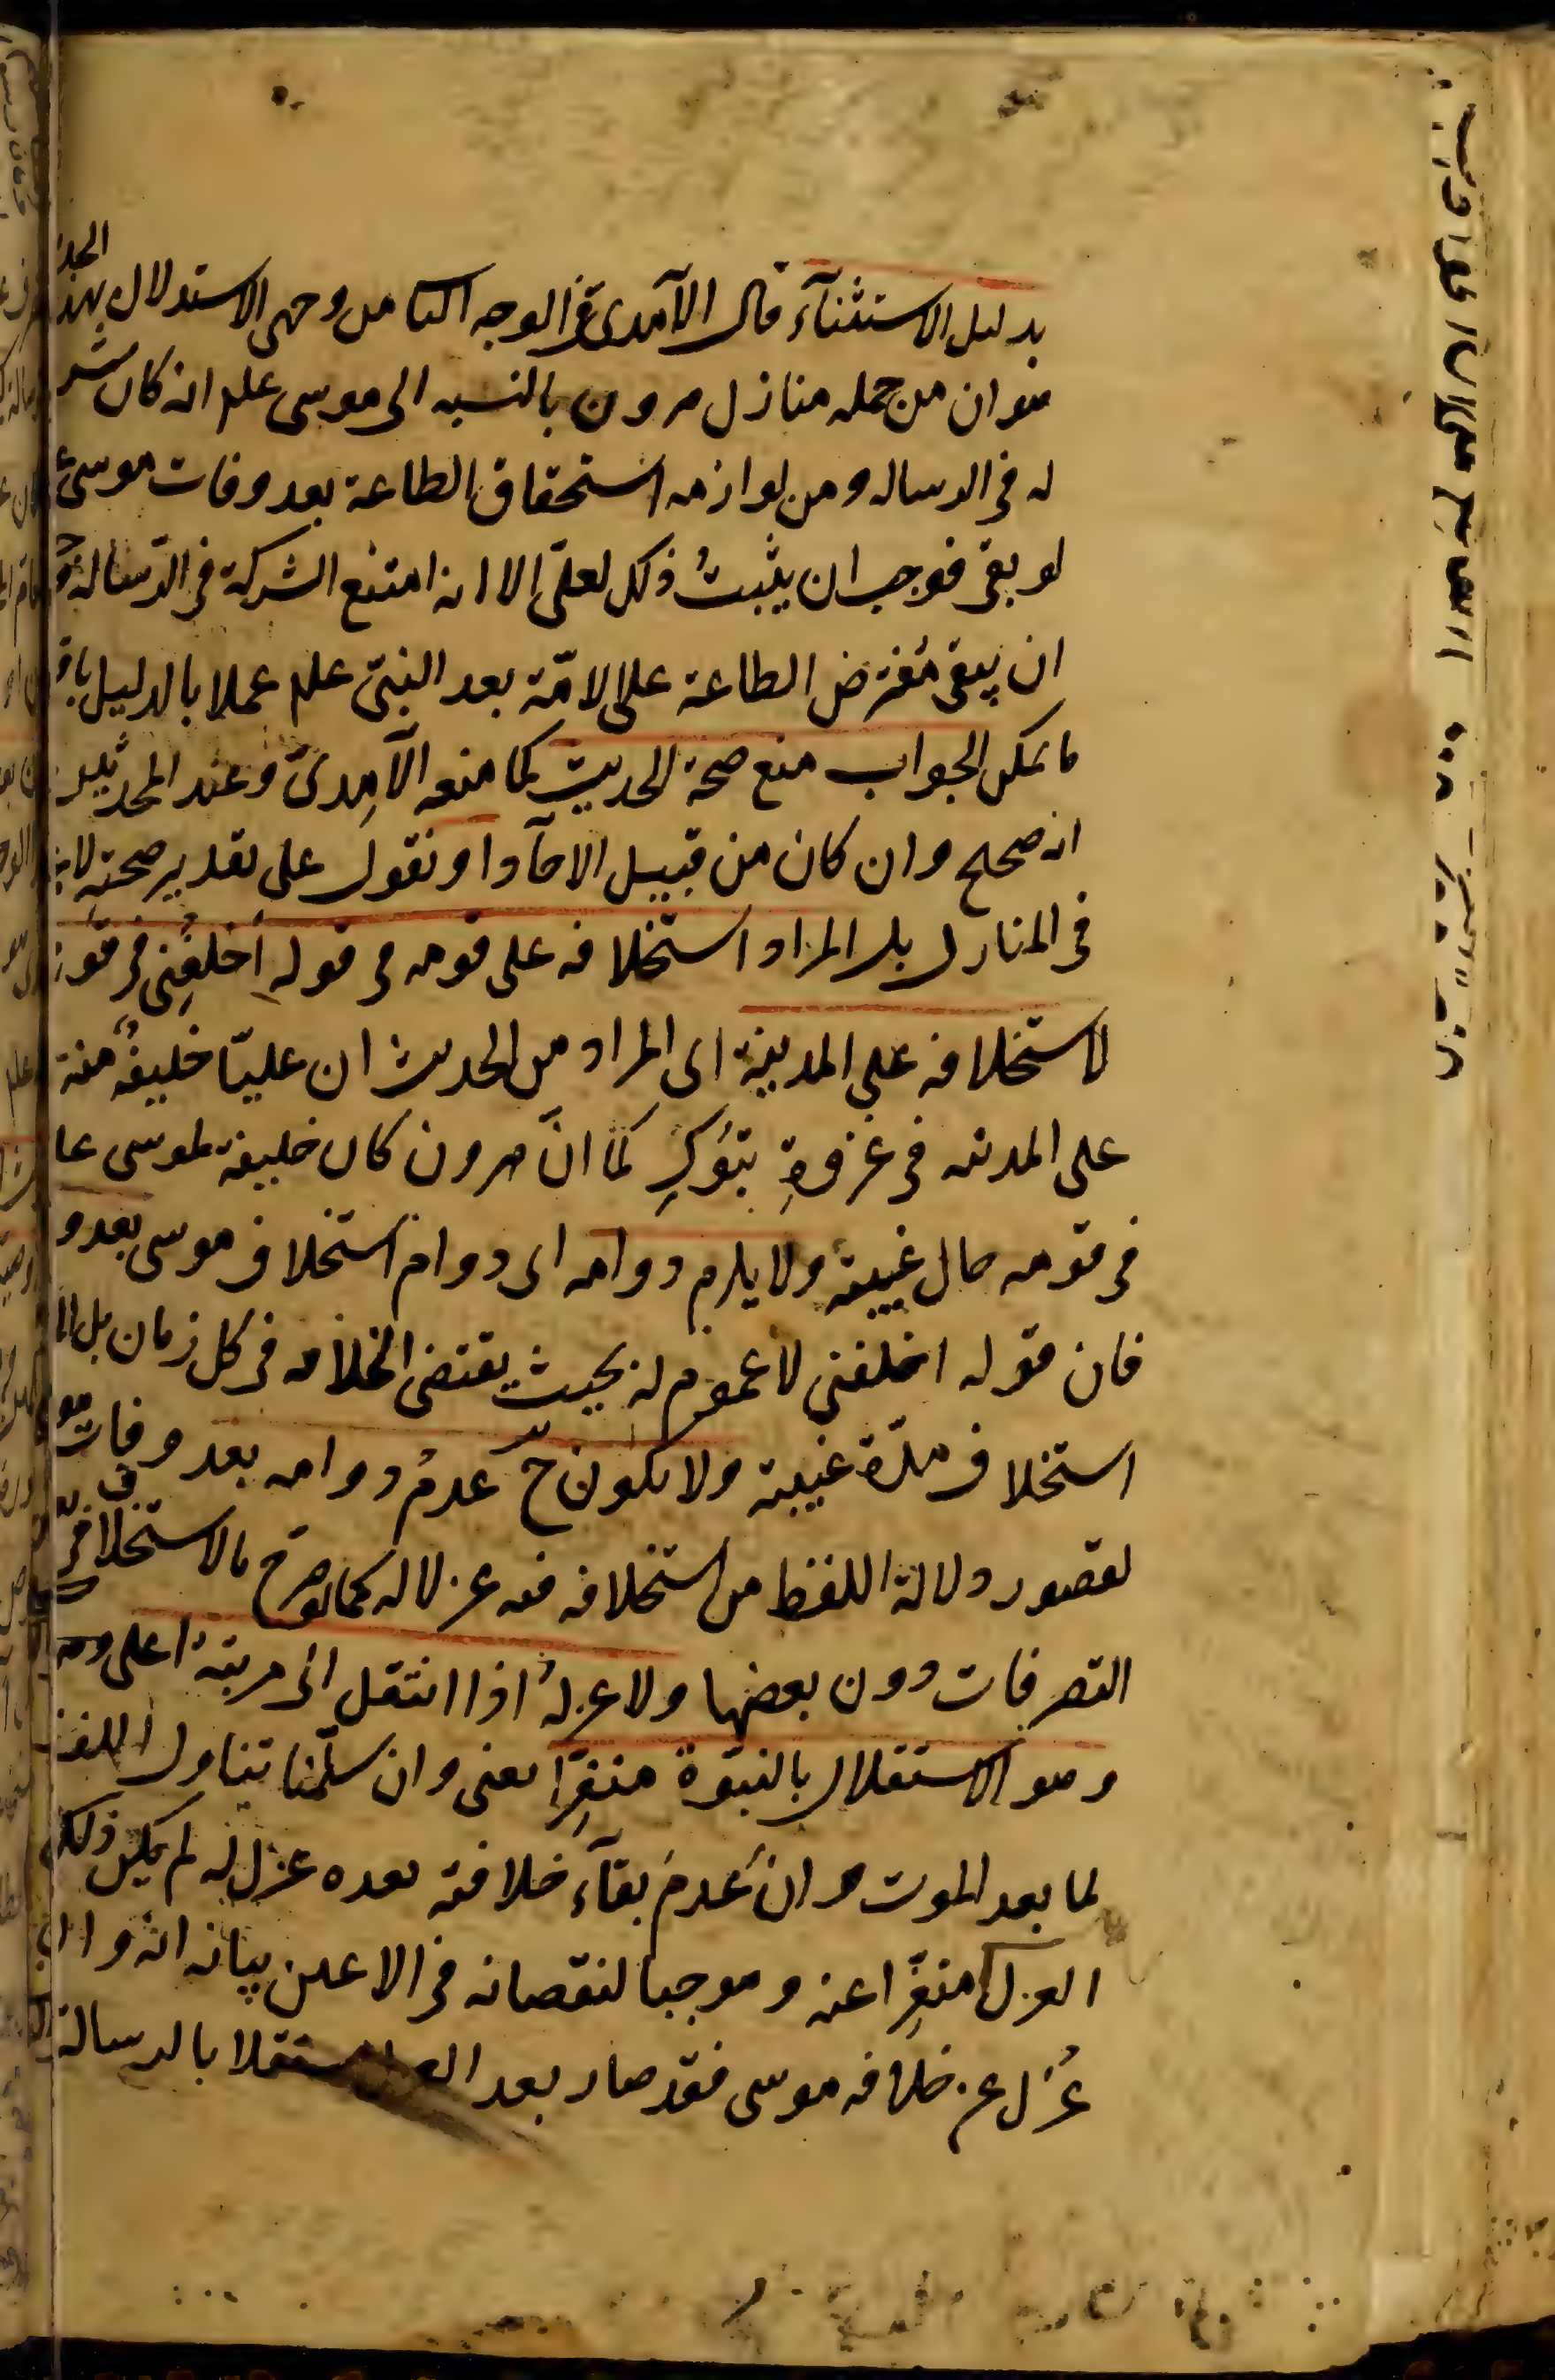 بدليل الاستثنآء قال الآمدى فى الوجه الثا من وجهى الاستدلال بهذا الحد
هو ان من جمله منازل هرون بالنسبه الى موسى علم انه كان شر
له فى الرساله ومن لوازمه استحقاق الطاعة بعد وفات موسى ع
لو بقى فوجب ان يثبتُ ذلك لعلىّ الا انه امتنع الشركة فى الرّساله فو
ان يبقى مُفترض الطاعة على الامّة بعد النبىّ علم عملا بالدليل باق
ما يمكن الجواب منع صحة الحديث كما منعه الآمِدىّ وعند المحدّثين
انه صحيح وان كان من قبيل الآحآد او نقول على تقدير صحته لا
فى المنازل بل المراد استخلافه على قومه فى قوله أخلفنى فى قو
لاستخلافه على المدينة اى المراد من الحديث ان عليّا خليفةٌ منه
على المدينه فى غزوةِ تبَوُكِ كما انّ هرون كان خليفة لموسى عا
فى قومه حال غيبيته ولا يلزم دوامه اى دوام استخلاف موسى بعد و
فان قوله اخلفنى لا عموم له بحيث يقتضى الخلافه فى كل زمان بل ال
استخلاف مدّة غيبية ولا يكون ح عدمُ دوامه بعد وفات مو
لقصور دلالة اللفظ من استخلافه فيه عزلا له كما لو صرح بالاستخلاف فى
التصرفات دون بعضها ولا عزلهُ اذا انتقل الى مرتبة اعلى وهو
وهو الاستقلال بالنبوّة منفِّرًا يعنى وان سلّمنا تناول اللفظ
لما بعد الموت وان عدمَ بقآء خلافته بعده عزل له لم يكن ذلك
العزل منفِّرا عنه وموجبا لنقصانه فى الاعين بيانه انه وان
عُزل عن خلافه موسى فقد صار بعد العزل مستقلا بالرسالة